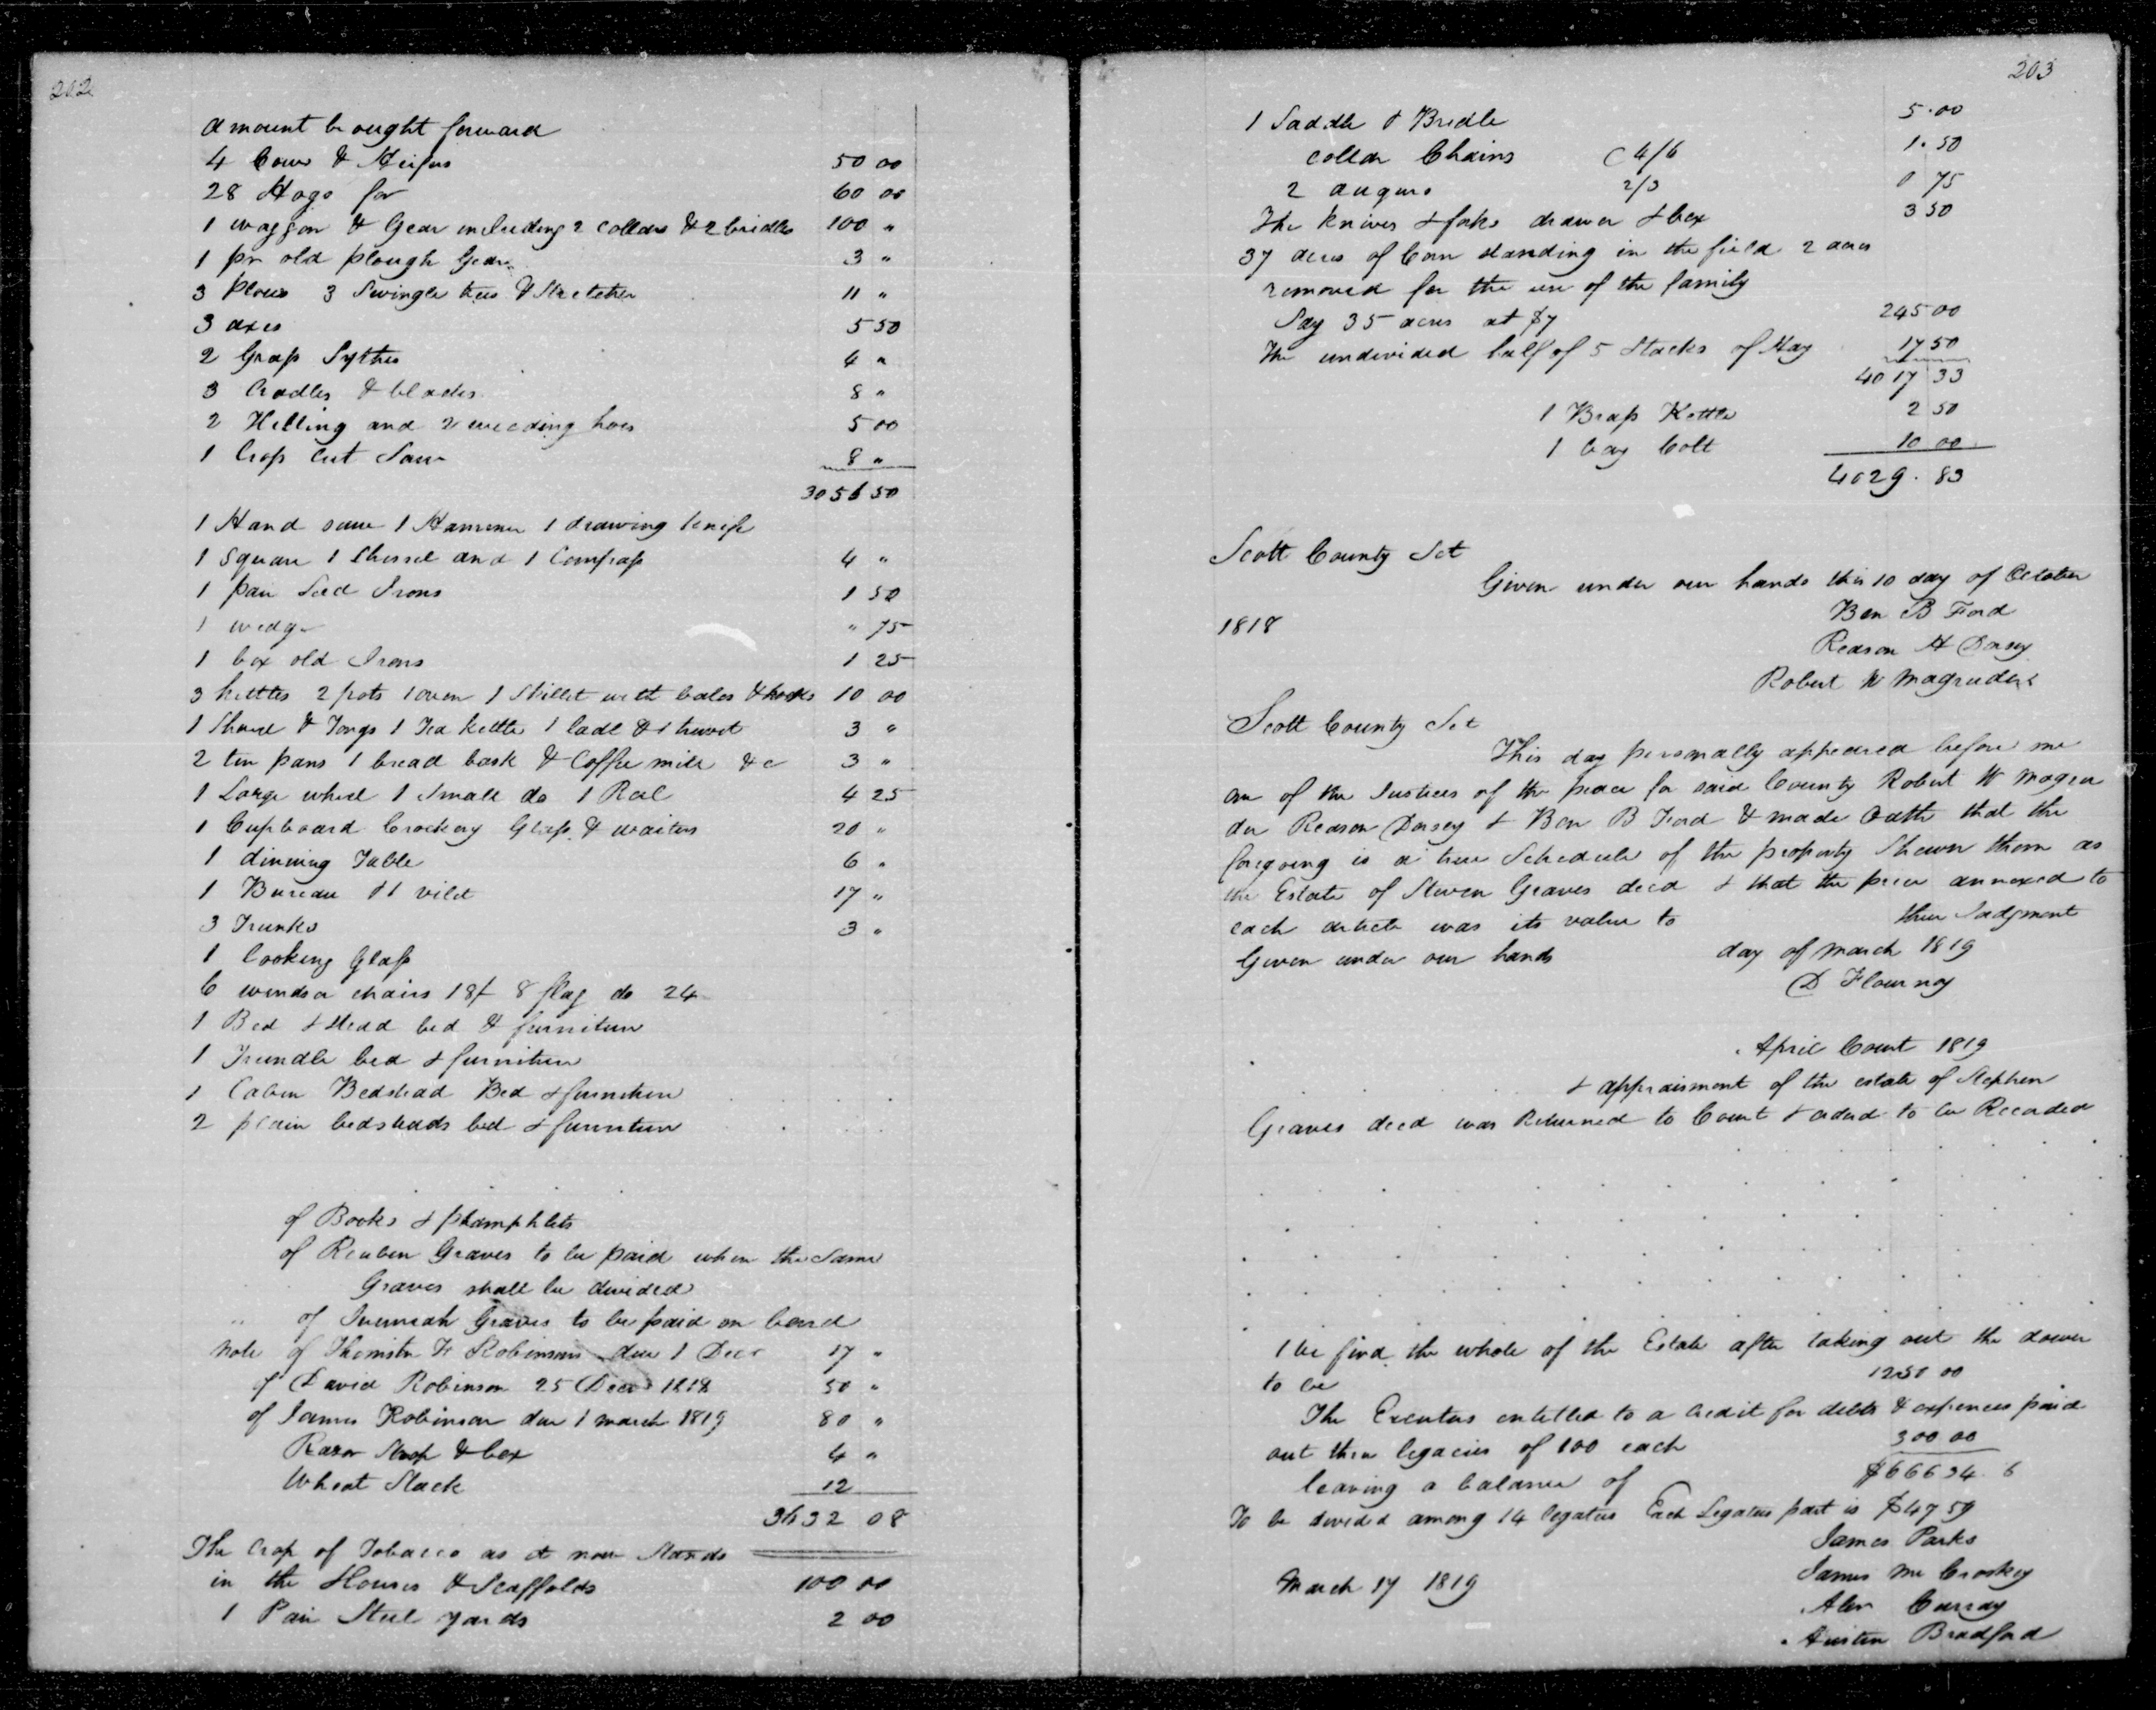 202
amount brought forward
4 Cows & Heifers 50 00
28 Hogs for 60 00
1 waggon & Gear including 2 collars & 2 bridles 100 "
1 pr old plough Gear 3 "
3 plows 3 Swingle trees & Stretcher 11 "
3 axes 5 50
2 Grass Sythes 4 "
3 Cradles & blades 8 "
2 Hilling and 2 weeding hoes 5 00
1 Cross Cut Saw 8 "
3056 50
1 Hand saw 1 Hammer 1 drawing knife
1 Square 1 Chissel and 1 Compass 4 "
1 pair Sled Irons 1 50
1 wedge " 75
1 box old Irons 1 25
3 kettles 2 pots 1 oven 1 Skillet with bales & hooks 10 00
1 Shovel & Tongs 1 Tea kettle 1 ladl & 1 truvet 3 "
2 tin pans 1 bread bask & Coffee mill &c 3 "
1 Large wheel 1 Small do 1 Reel 4 25
1 Cupboard Crockery Glass & waiters 20 "
1 dinning Table 6 "
1 Bureau & 1 17 "
3 Trunks 3 "
1 looking Glass
6 windsor chairs 18/ 8 flag do 24
1 Bed & stead bed & furniture
1 Trundle bed & furniture
1 Cabin Bedstead Bed & furniture
2 plain bedsteads bed & furniture
of Books & phamphlets
of Reuben Graves to be paid when the Same
Graves shall be divided
of Jeremiah Graves to be paid on board
Note of F Robinsons due 1 Decr 17 "
of David Robinson 25 Decr 1818 50 "
of James Robinson due 1 march 1819 80 "
Razor Strop & box 4 "
Wheat Stack 12
3632 08
The Crop of Tobacco as it now Stands
in the Houses & Scaffolds 100 00
1 Pair Steel yards 2 00
203
1 Saddle & Bridle 5.00
collar Chains 4/6 1.50
2 augurs 2/3 0 75
The knives & forks drawer & box 3 50
37 acres of Corn standing in the field 2 acres
removed for the use of the family
Say 35 acres at $7 245 00
The undivided half of 5 Stacks of Hay 17 50
4017 33
1 Brass Kettle 2 50
1 bay Colt 10 00
4029.83
Scott County Sct
Given under our hands this 10 day of October
1818
Ben B Ford
Reason H Dorsey
Robert W Magruder
Scott County Sct
This day personally appeared before me
one of the Justices of the peace for said County Robert W Magru
der Reason Dorsey & Ben B Ford & made Oath that the
foregoing is a true Schedule of the property Shewn them as
the Estate of Steven Graves decd & that the price annexed to
each article was its value to their Judgment
Given under our hands day of march 1819
D Flournoy
April Court 1819
& appraisment of the estate of Stephen
Graves decd was Returned to Court & ordered to be Recorded
We find the whole of the Estate after taking out the dower
to be 1250 00
The Executors entitled to a credit for debts & expences paid
out three legacies of 100 each 300 00
leaving a balance of $66634. 6
To be divided among 14 legatees Each Legatees part is $4759
James Parks
March 17 1819
James Mc Croskey
Alex Curray
Austin Bradford